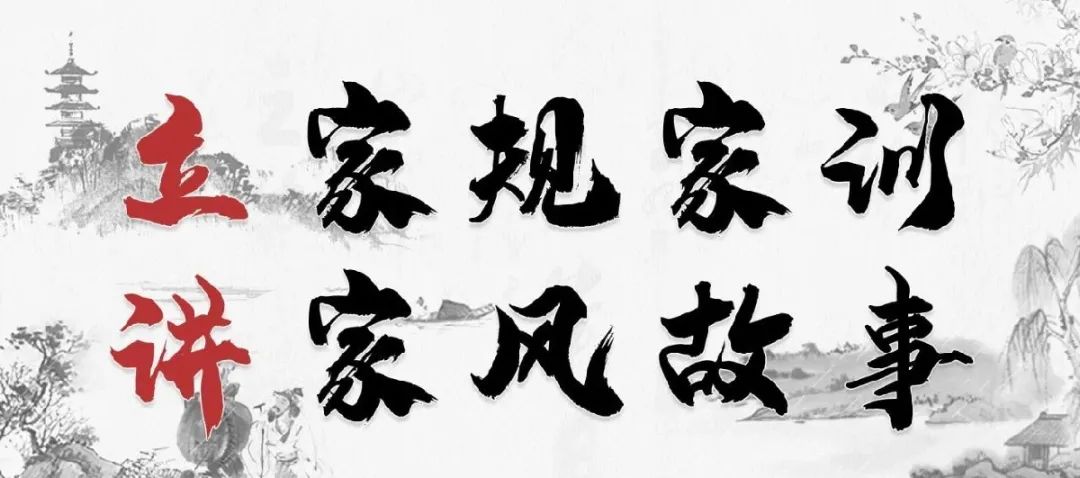 立家规家训
讲家风故事